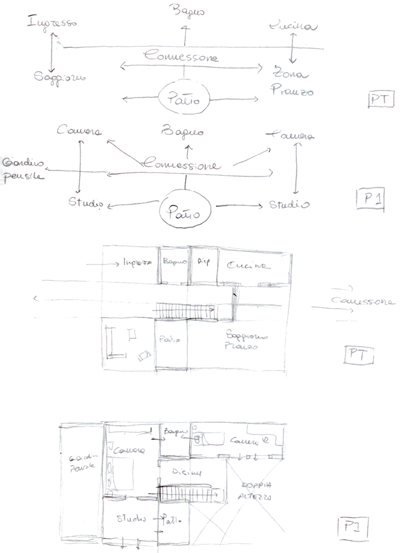 Bagno
Ingresso
Cucina
Connessione
Soggiorno
Zona
Pranzo
Patio
PT
Camera
Bagno
Camera
Giardino
pensile
Connessione
Studio
Patio
Studio
P1
Ingresso
Bagno
Rip
Cucina
Connessione
Patio
Soggiorno
Pranzo
PT
Giardino
Pensile
Camera
Bagno
Camera
DOPPIA
ALTEZZA
Studio
Patio
P1